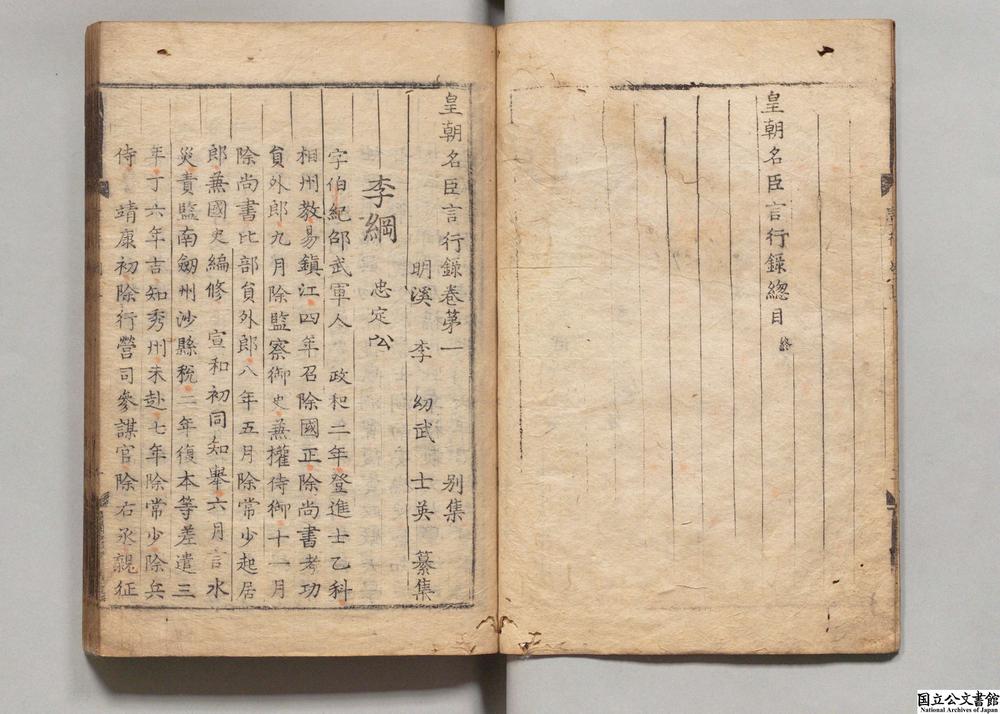 皇朝名臣言行錄總目 終
皇朝名臣言行錄卷第一 別集
明溪 李 幼武 士英 纂集
李綱 忠定公
字伯紀邵武軍人 政和二年登進士乙科
相州教易鎭江四年召除國正除尚書考功
負外郎九月除監察御史蒹權侍御十一月
除尚書比部負外郎八年五月除常少起居
郎蒹國史編修 宣和初同知舉六月言水
災責監南劒州沙縣稅二年復本等差遣三
年丁六年吉知秀州未赴七年除常少除兵
侍 靖康初除行營司參謀官除右丞親征
国立公文書館
National Archives of Japan